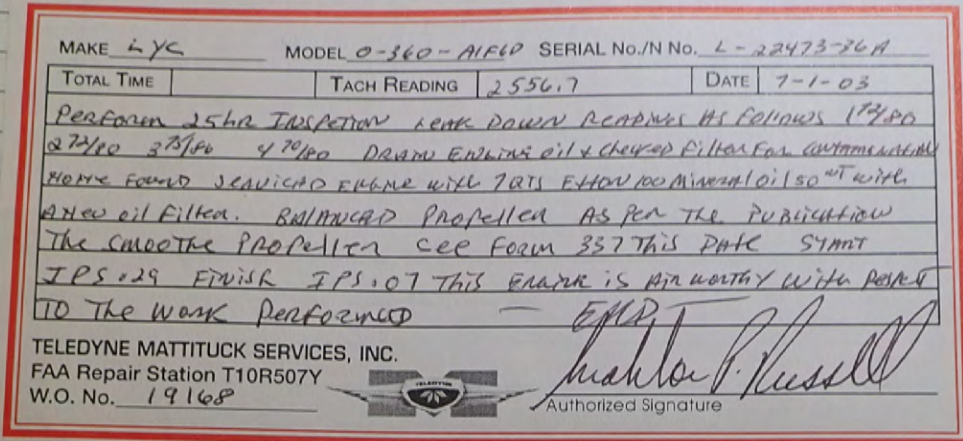 MAKE Lyc MODEL O-360-A1F6D SERIAL No./N No. L-22473-36A
TOTAL TIME TACH READING 2556.7 DATE 7-1-03
Perform 25hr Inspetion Leak Down Readings As Follows 1 72/80
2 72/80 3 75/80 4 70/80 Drain Engine oil & Checked Filter For Contamination
None Found Serviced Engine with 7 QTS Exxon 100 Mineral oil 50 WT with
A New oil Filter. BALANCED Propeller AS Per The Publication
The Smoothe Propeller See Form 337 This Date START
IPS .29 Finish IPS .07 This Engine is Airworthy With Respect
TO The Work Performed — END
TELEDYNE MATTITUCK SERVICES, INC.
FAA Repair Station T10R507Y
W.O. No. 19168
TELEDYNE
P. Russell
Authorized Signature